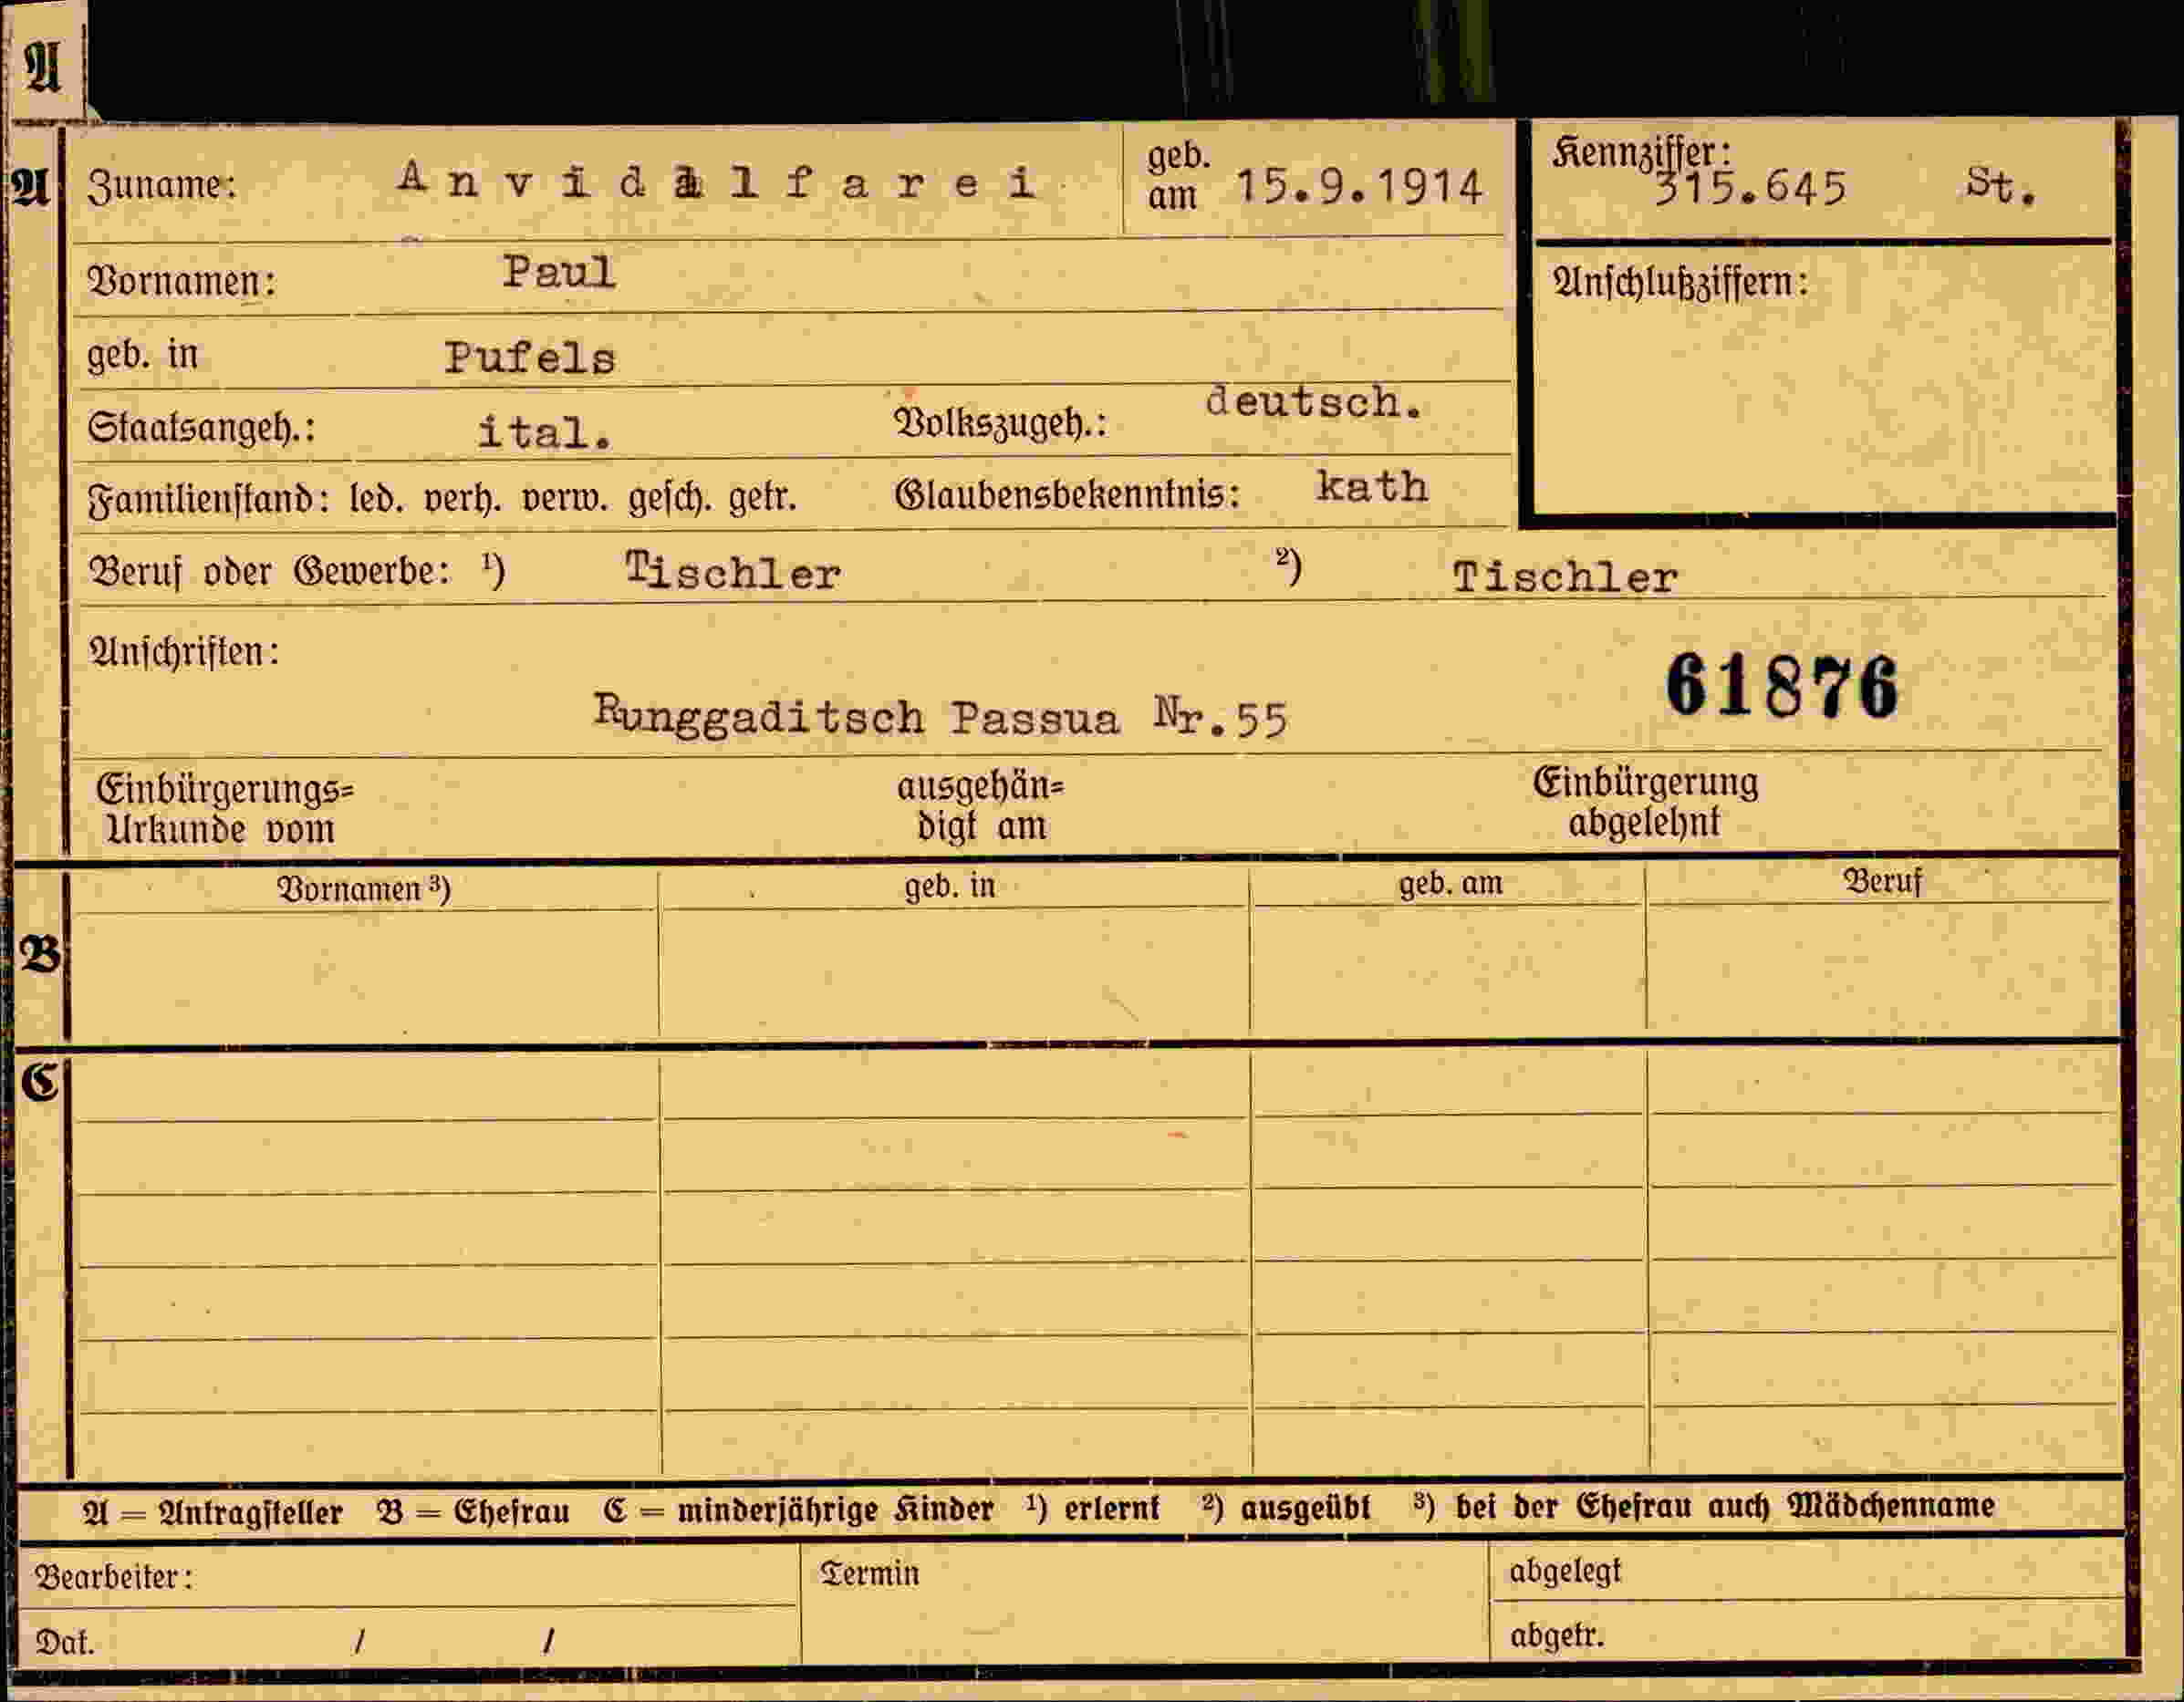 A
A Zuname: Anvidalfarei geb. am 15.9.1914 Kennziffer: 315.645 St.
Vornamen: Paul Anschlußziffern:
geb. in Pufels
Staatsangeh.: ital. Volkszugeh.: deutsch.
Familienstand: led. verh. verw. gesch. getr. Glaubensbekenntnis: kath
Beruf oder Gewerbe: ¹) Tischler ²) Tischler
Anschriften: 61876
Runggaditsch Passua Nr.55
Einbürgerungs= ausgehän= Einbürgerung
Urkunde vom digt am abgelehnt
Vornamen ³) geb. in geb. am Beruf
B
C
A = Antragsteller B = Ehefrau C = minderjährige Kinder ¹) erlernt ²) ausgeübt ³) bei der Ehefrau auch Mädchenname
Bearbeiter: Termin abgelegt
Dat. / / abgetr.